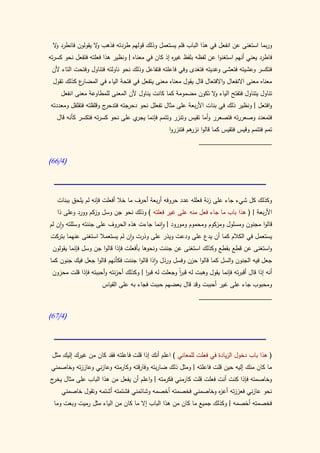 وربما استغنى عن انفعل في هذا الباب فلم يستعمل وذلك قولهم طردته فذهب ولا يقولون فانطرد ولا
فاطرد يعني أنهم استغنوا عن لفظه بلفظ غيره إذ كان في معناه | ونظير هذا فعلته فتفعل نحو كسرته
فتكسر وعشيته فتعشى وغديته فتغدى وفي فاعلته فتفاعل وذلك نحو ناولته فتناول وفتحت التاء لأن
معناه معنى الانفعال والافتعال قال يقول معناه معنى يتفعل في فتحة الياء في المضارع كذلك تقول
تناول يتناول فتفتح الياء ولا تكون مضمومة كما كانت يناول لأن المعنى للمطاوعة معنى انفعل
وافتعل | ونظير ذلك في بنات الأربعة على مثال تفعلل نحو دحرجته فتدحرج وقلقلته فتقلقل ومعددته
فتمعدد وصعررته فتصعرر وأما تقيس وتنزر وتتمم فإنما يجري على نحو كسرته فتكسر كأنه قال
تمم فتتمم وقيس فتقيس كما قالوا نزرهم فتنزروا
(66/4)
وكذلك كل شيء جاء على زنة فعلله عدد حروفه أربعة أحرف ما خلا أفعلت فإنه لم يلحق ببنات
الأربعة | ( هذا باب ما جاء فعل منه على غير فعلته ) وذلك نحو جن وسل وزكم وورد وعلى ذا
قالوا مجنون ومسلول ومزكوم ومحموم ومورود | وإنما جاءت هذه الحروف على جننته وسللته وإن لم
يستعمل في الكلام كما أن يدع على ودعت ويذر على وذرت وإن لم يستعملا استغنى عنهما بتركت
واستغنى عن قطع بقطع وكذلك استغنى عن جننت ونحوها بأفعلت فإذا قالوا جن وسل فإنما يقولون
جعل فيه الجنون والسل كما قالوا حزن وفسل ورذل وإذا قالوا جننت فكأنهم قالوا جعل فيك جنون كما
أنه إذا قال أقبرته فإنما يقول وهبت له قبراً وجعلت له قبرا | وكذلك أحزنته وأحببته فإذا قلت محزون
ومحبوب جاء على غير أحببت وقد قال بعضهم حببت فجاء به على القياس
(67/4)
( هذا باب دخول الزيادة في فعلت للمعاني ) اعلم أنك إذا قلت فاعلته فقد كان من غيرك إليك مثل
ما كان منك إليه حين قلت فاعلته | ومثل ذلك ضاربته وفارقته وكارمته وعازني وعاززته وخاصمني
وخاصمته فإذا كنت أنت فعلت قلت كارمني فكرمته | واعلم أن يفعل من هذا الباب على مثال يخرج
نحو عازني فعززته أعزه وخاصمني فخصمته أخصمه وشاتمني فشتمته أشتمه وتقول خاصمني
فخصمته أخصمه | وكذلك جميع ما كان من هذا الباب إلا ما كان من الياء مثل رميت وبعت وما